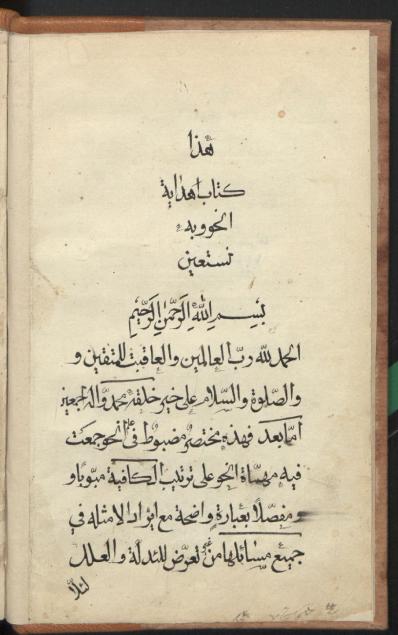 هذا
كتاب هداية
النحو وبه
نستعين
بسم الله الرحمن الرحيم
الحمد لله رب العالمين والعاقبت للمتقين و
والصلوة والسلام على خير خلقه محمد واله اجمعين
اما بعد فهذه مختصر مضبوط فى النحو جمعت
فيه مهمات النحو على ترتيب الكافية مبوبا و
و مفصلا بعبارة واضحة مع ايراد الامثلة في
جميع مسائلها من تعرض للادلة والعلل
لئلا